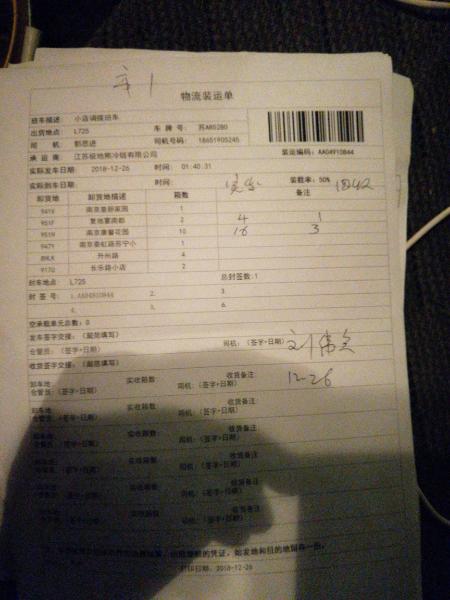 物流装运单
班车描述 小店调拨班车
出货地点 L725 车 牌 号: 苏A85280
司 机 郭思进 司机号码: 18651905245
承 运 商 江苏极地熊冷链有限公司 装运编码: AA04910844
实际发车日期: 2018-12-26 时间: 01:40.31 装载率: 50%
实际到车日期: 时间: 1842
卸货地 卸货地描述 箱数 备注
941X 1
951F 2 4 1
951N 南京康馨花园 10 16 3
947Y 1
89LK 升州路 4
917D 长乐路小店 2
封车地: L725 总封签数:1
封 签 号: 1.AA04910844 2. 3.
4. 5. 6.
空承载单元总数: 0
发车签字交接:(规范填写)
仓管员:(签字+日期) 司机:(签字+日期)
收货签字交接:(规范填写) 12-26
卸车地 实收箱数: 收货备注:
仓管员:(签字+日期) 司机:(签字+日期)
卸车地 实收箱数: 收货备注:
仓管员:(签字+日期) 司机:(签字+日期)
卸车地 实收箱数: 收货备注:
仓管员:(签字+日期) 司机:(签字+日期)
实收箱数: 收货备注:
司机:(签字+日期)
实收箱数: 收货备注:
司机:(签字+日期)
实收箱数: 收货备注:
司机:(签字+日期)
的凭证,如发地和目的地留存一份。
打印日期: 2018-12-26